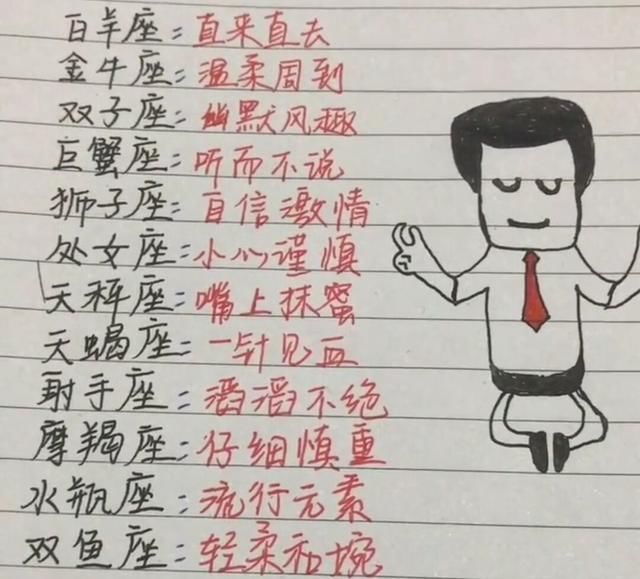 白羊座:直来直去
金牛座:温柔周到
双子座:幽默风趣
巨蟹座:听而不说
狮子座:自信激情
处女座:小心谨慎
天秤座:嘴上抹蜜
天蝎座:一针见血
射手座:滔滔不绝
摩羯座:仔细慎重
水瓶座:流行元素
双鱼座:轻柔和婉